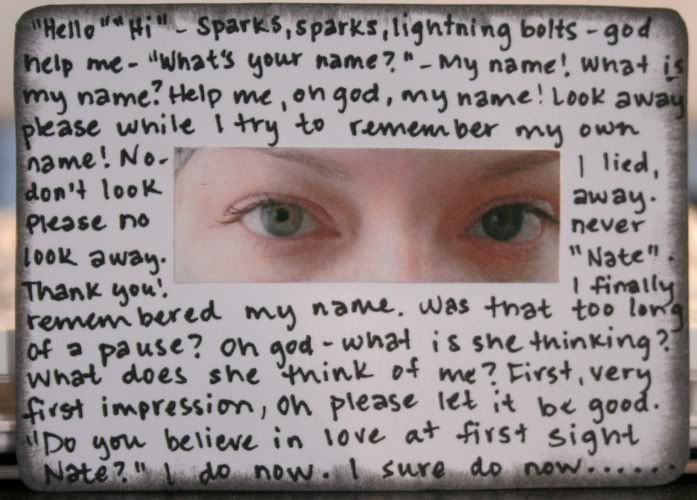 "Hello" "Hi" - Sparks, sparks, lightning bolts - god
help me - "What's your name?" - My name! What is
my name? Help me, oh god, my name! Look away
please while I try to remember my own
name! No- I lied,
don't look away.
Please no never
look away. "Nate".
Thank you! I finally
remembered my name. Was that too long
of a pause? Oh god - what is she thinking?
What does she think of me? First, very
first impression, oh please let it be good.
"Do you believe in love at first sight
Nate?" I do now. I sure do now......